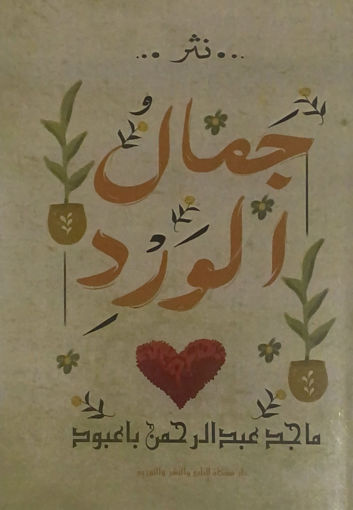 ... نثر ...
جَمَالُ
الوَرْدِ
ماجد عبدالرحمن باعبود
دار مشكاة للطبع والنشر والتوزيع